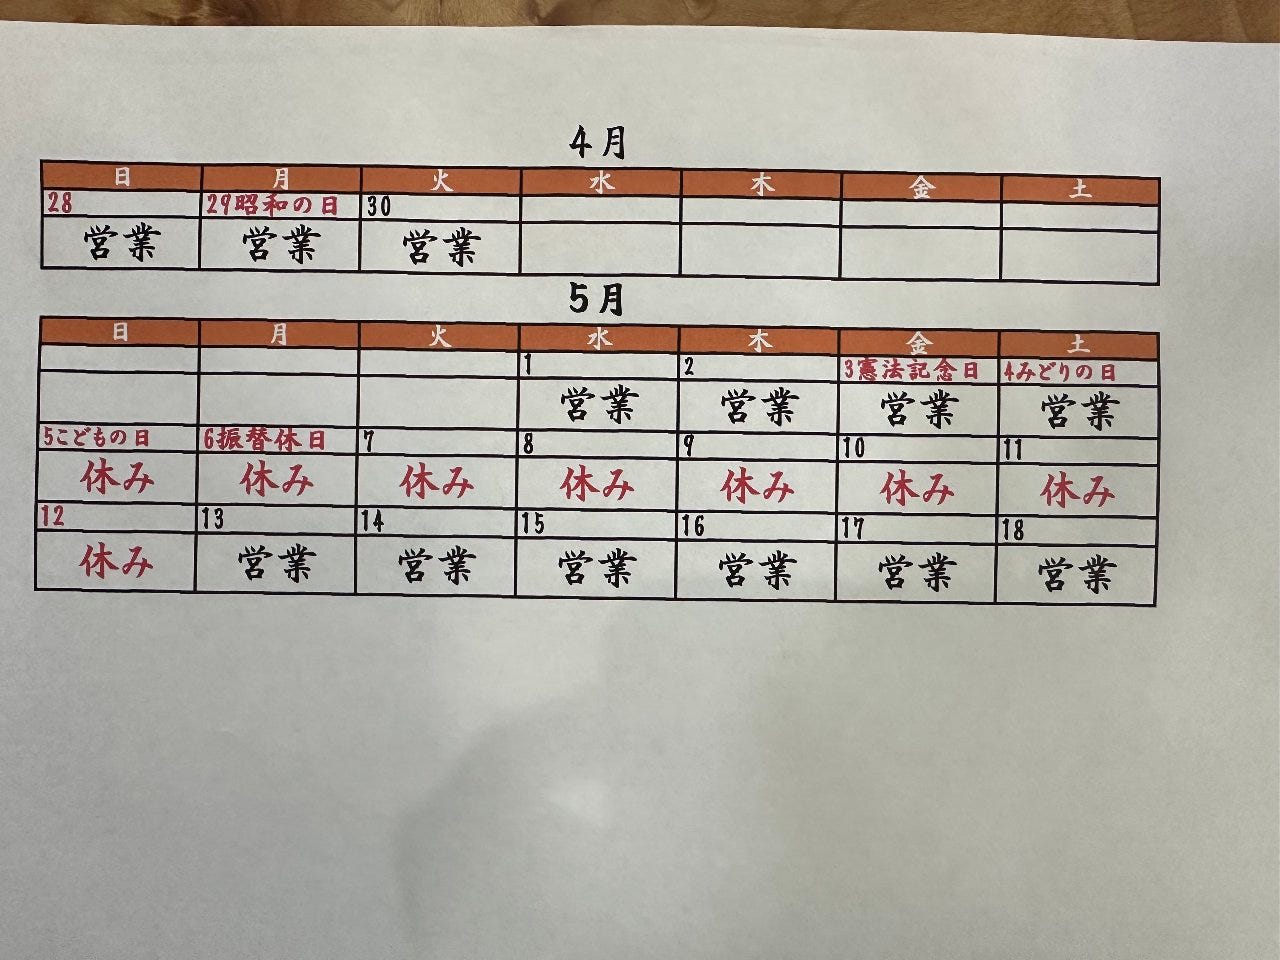 4月
日 月 火 水 木 金 土
28 29昭和の日 30
営業 営業 営業
5月
日 月 火 水 木 金 土
1 2 3憲法記念日 4みどりの日
営業 営業 営業 営業
5こどもの日 6振替休日 7 8 9 10 11
休み 休み 休み 休み 休み 休み 休み
12 13 14 15 16 17 18
休み 営業 営業 営業 営業 営業 営業